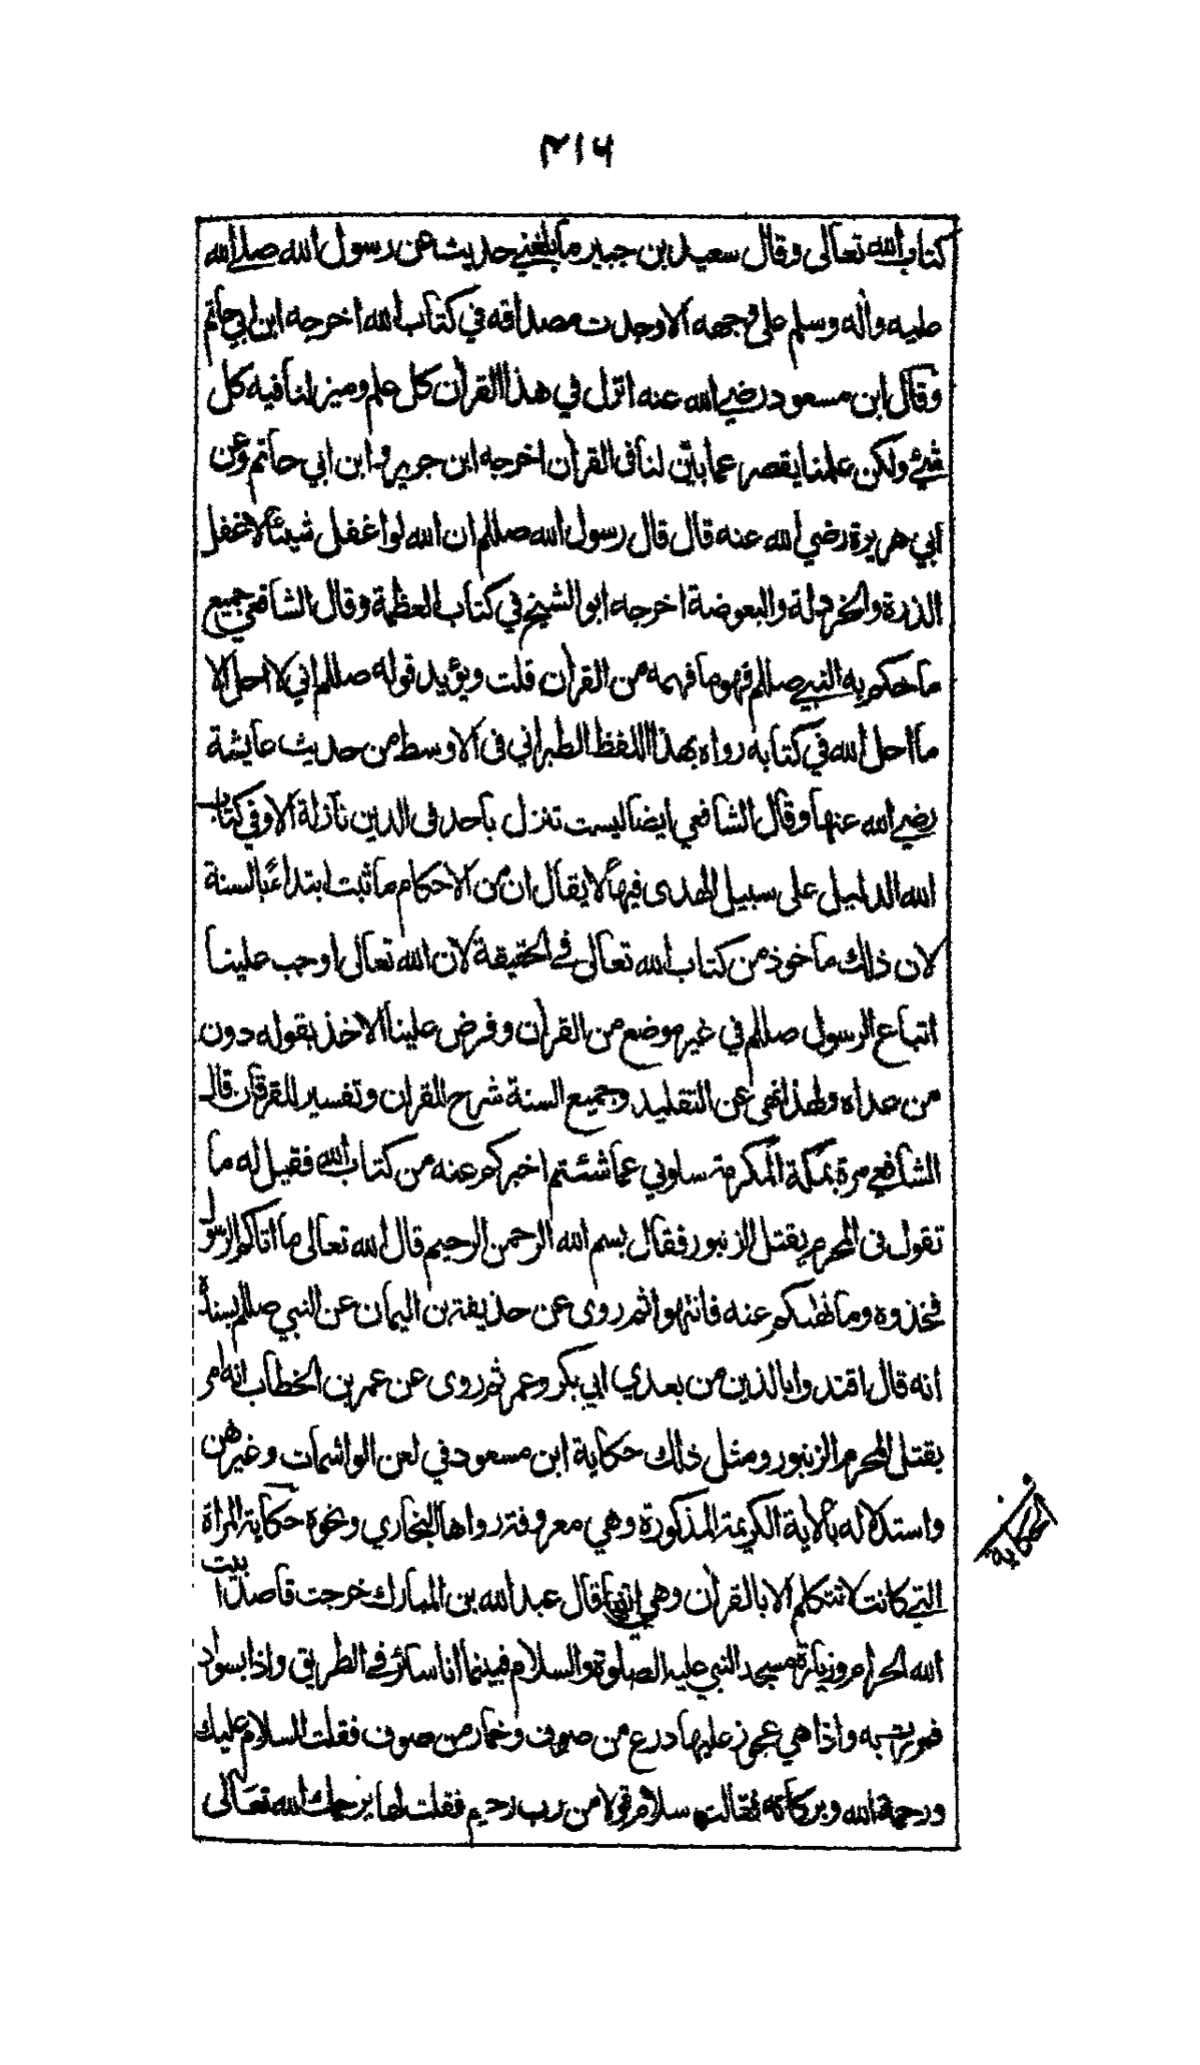 ٣١٦
كتاب الله تعالى وقال سعيد بن جبير ما بلغني حديث عن رسول الله صلى الله
عليه واله وسلم على وجهه الا وجدت مصداقه في كتاب الله اخرجه ابن ابي حاتم
وقال ابن مسعود رضي الله عنه انزل في هذا القرآن كل علم وميز لنا فيه كل
شيء ولكن علمنا يقصر عما بيّن لنا في القرآن اخرجه ابن جرير وابن ابي حاتم وعن
ابي هريرة رضي الله عنه قال قال رسول الله صللم ان الله لو اغفل شيئا لاغفل
الذرة والخردلة والبعوضة اخرجه ابو الشيخ في كتاب العظمة وقال الشافعي جميع
ما حكم به النبي صللم فهو ما فهمه من القرآن قلت ويؤيد قوله صللم اني لا احل الا
ما احل الله في كتابه رواه بهذا اللفظ الطبراني في الاوسط من حديث عايشة
رضي الله عنها وقال الشافعي ايضا ليست تنزل باحد في الدين نازلة الا وفي كتاب
الله الدليل على سبيل الهدى فيها لا يقال ان من الاحكام ما ثبت ابتداءً بالسنة
لان ذلك ماخوذ من كتاب الله تعالى في الحقيقة لان الله تعالى اوجب علينا
اتباع الرسول صللم في غير موضع من القرآن وفرض علينا الاخذ بقوله دون
من عداه ولهذا نهى عن التقليد وجميع السنة شرح للقرآن وتفسير للقرقان قال
الشافعي مرة بمكة المكرمة سلوني عما شئتم اخبركم عنه من كتاب الله فقيل له ما
تقول في المحرم يقتل الزنبور فقال بسم الله الرحمن الرحيم قال الله تعالى ما اتاكم الرسول
فخذوه وما نهىكم عنه فانتهوا ثم روى عن حذيفة بن اليمان عن النبي صللم بسنده
انه قال اقتدوا بالذين من بعدي ابي بكر وعمر ثم روى عن عمر بن الخطاب انه امر
بقتل المحرم الزنبور ومثل ذلك حكاية ابن مسعود في لعن الواشمات وغيرهن
واستدلاله بالاية الكريمة المذكورة وهي معروفة رواها البخاري ونحوه حكاية المراة
التي كانت لا تتكلم الا بالقرآن وهي انها قال عبد الله بن المبارك خرجت قاصدا بيت
الله الحرام وزيارة مسجد النبي عليه الصلوة والسلام فبينما انا سائر في الطريق واذا بسواد
فمررت به واذا هي عجوز عليها درع من صوف وخمار من صوف فقلت السلام عليك
ورحمة الله وبركاته فقالت سلام قولا من رب رحيم فقلت لها يرحمك الله تعالى